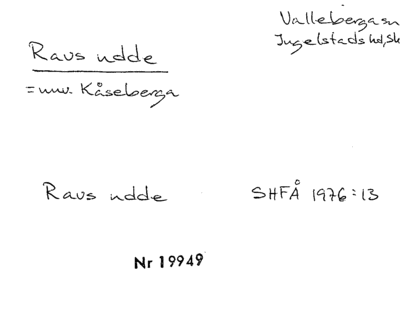 Vallebergasn
Ingelstads hd, Sk
Ravs udde
= nuv. Kåseberga
Ravs udde SHFÅ 1976:13
Nr 19949